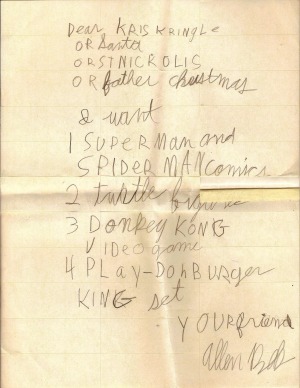 Dear KRIS KRINGLE
OR Santa
OR ST NICROLIS
OR father christmas
I want
1 SUPERMAN and
SPIDERMAN comics
2 turtle
3 DONKEY KONG
VIDEO game
4 PLay-DOhBURger
KING set
YOUR friend
Allen